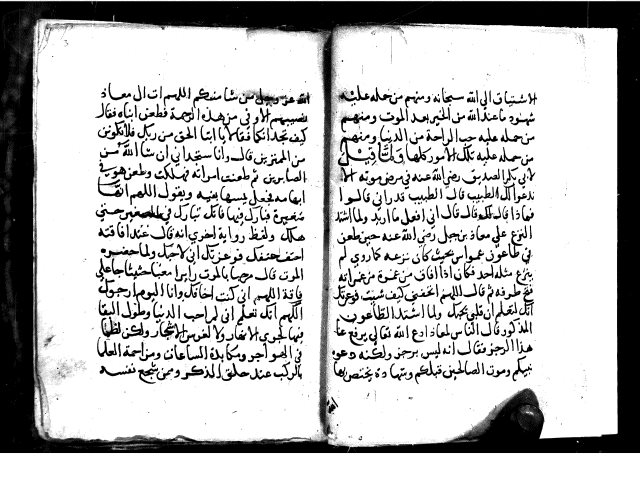 الاشتياق الى الله سبحانه ومنهم من حمله عليه
شهود ما عند الله من الخير بعد الموت ومنهم
من حمله عليه حب الراحة من الدنيا ومنهم
من حمله عليه تلك الامور كلها ولما قيل
لابي بكر الصديق رضي الله عنه في مرض موته الا
ندعوا لك الطبيب قال الطبيب قد راني قالوا
فماذا قال لك قال قال اني افعل ما اريد ولما اشتد
النزع على معاذ بن جبل رضي الله عنه حين طعن
في طاعون عمواس بحيث كان نزعه كما روي لم
ينزع مثله احد فكان اذا افاق من غمرة من غمراته
فتح طرفه ثم قال اللهم اخنقني كيف شئت فوعزتك
انك لتعلم ان قلبي يحبك ولما اشتد الطاعون
المذكور قال الناس لمعاذ ادع الله تعالى يرفع عنا
هذا الرجز فقال انه ليس برجز ولكنه دعوة
نبيكم وموت الصالحين قبلكم وشهادة يختص بها
الله عز وجل من شا منكم اللهم ات ال معاذ
نصيبهم الاوفى من هذه الرحمة فطعن ابناه فقال
كيف تجدانكما فقالا يا ابتا الحق من ربك فلا تكونن
من الممترين قال وانا ستجداني ان شا الله من
الصابرين ثم طعنت امراته فهلكت وطعن هو في
ابهامه فجعل يمسها بفيه ويقول اللهم انها
صغيرة فبارك فيها فانك تبارك في الصغير حتى
هلك ولفظ رواية اخرى انه قال عند افاقته
اخنق خنقك فوعزتك اني لاحبك ولما حضره
الموت قال مرحبا بالموت زايرا مغيبا حبيبا جا على
فاقة اللهم اني كنت اخافك وانا اليوم ارجوك
اللهم انك تعلم اني لم احب الدنيا وطول البقا
فيها لجري الانهار ولا لغرس الاشجار ولكن لظما
في الهواجر ومكابدة الساعات ومزاحمة العلما
بالركب عند حلق الذكر وممن شجع نفسه